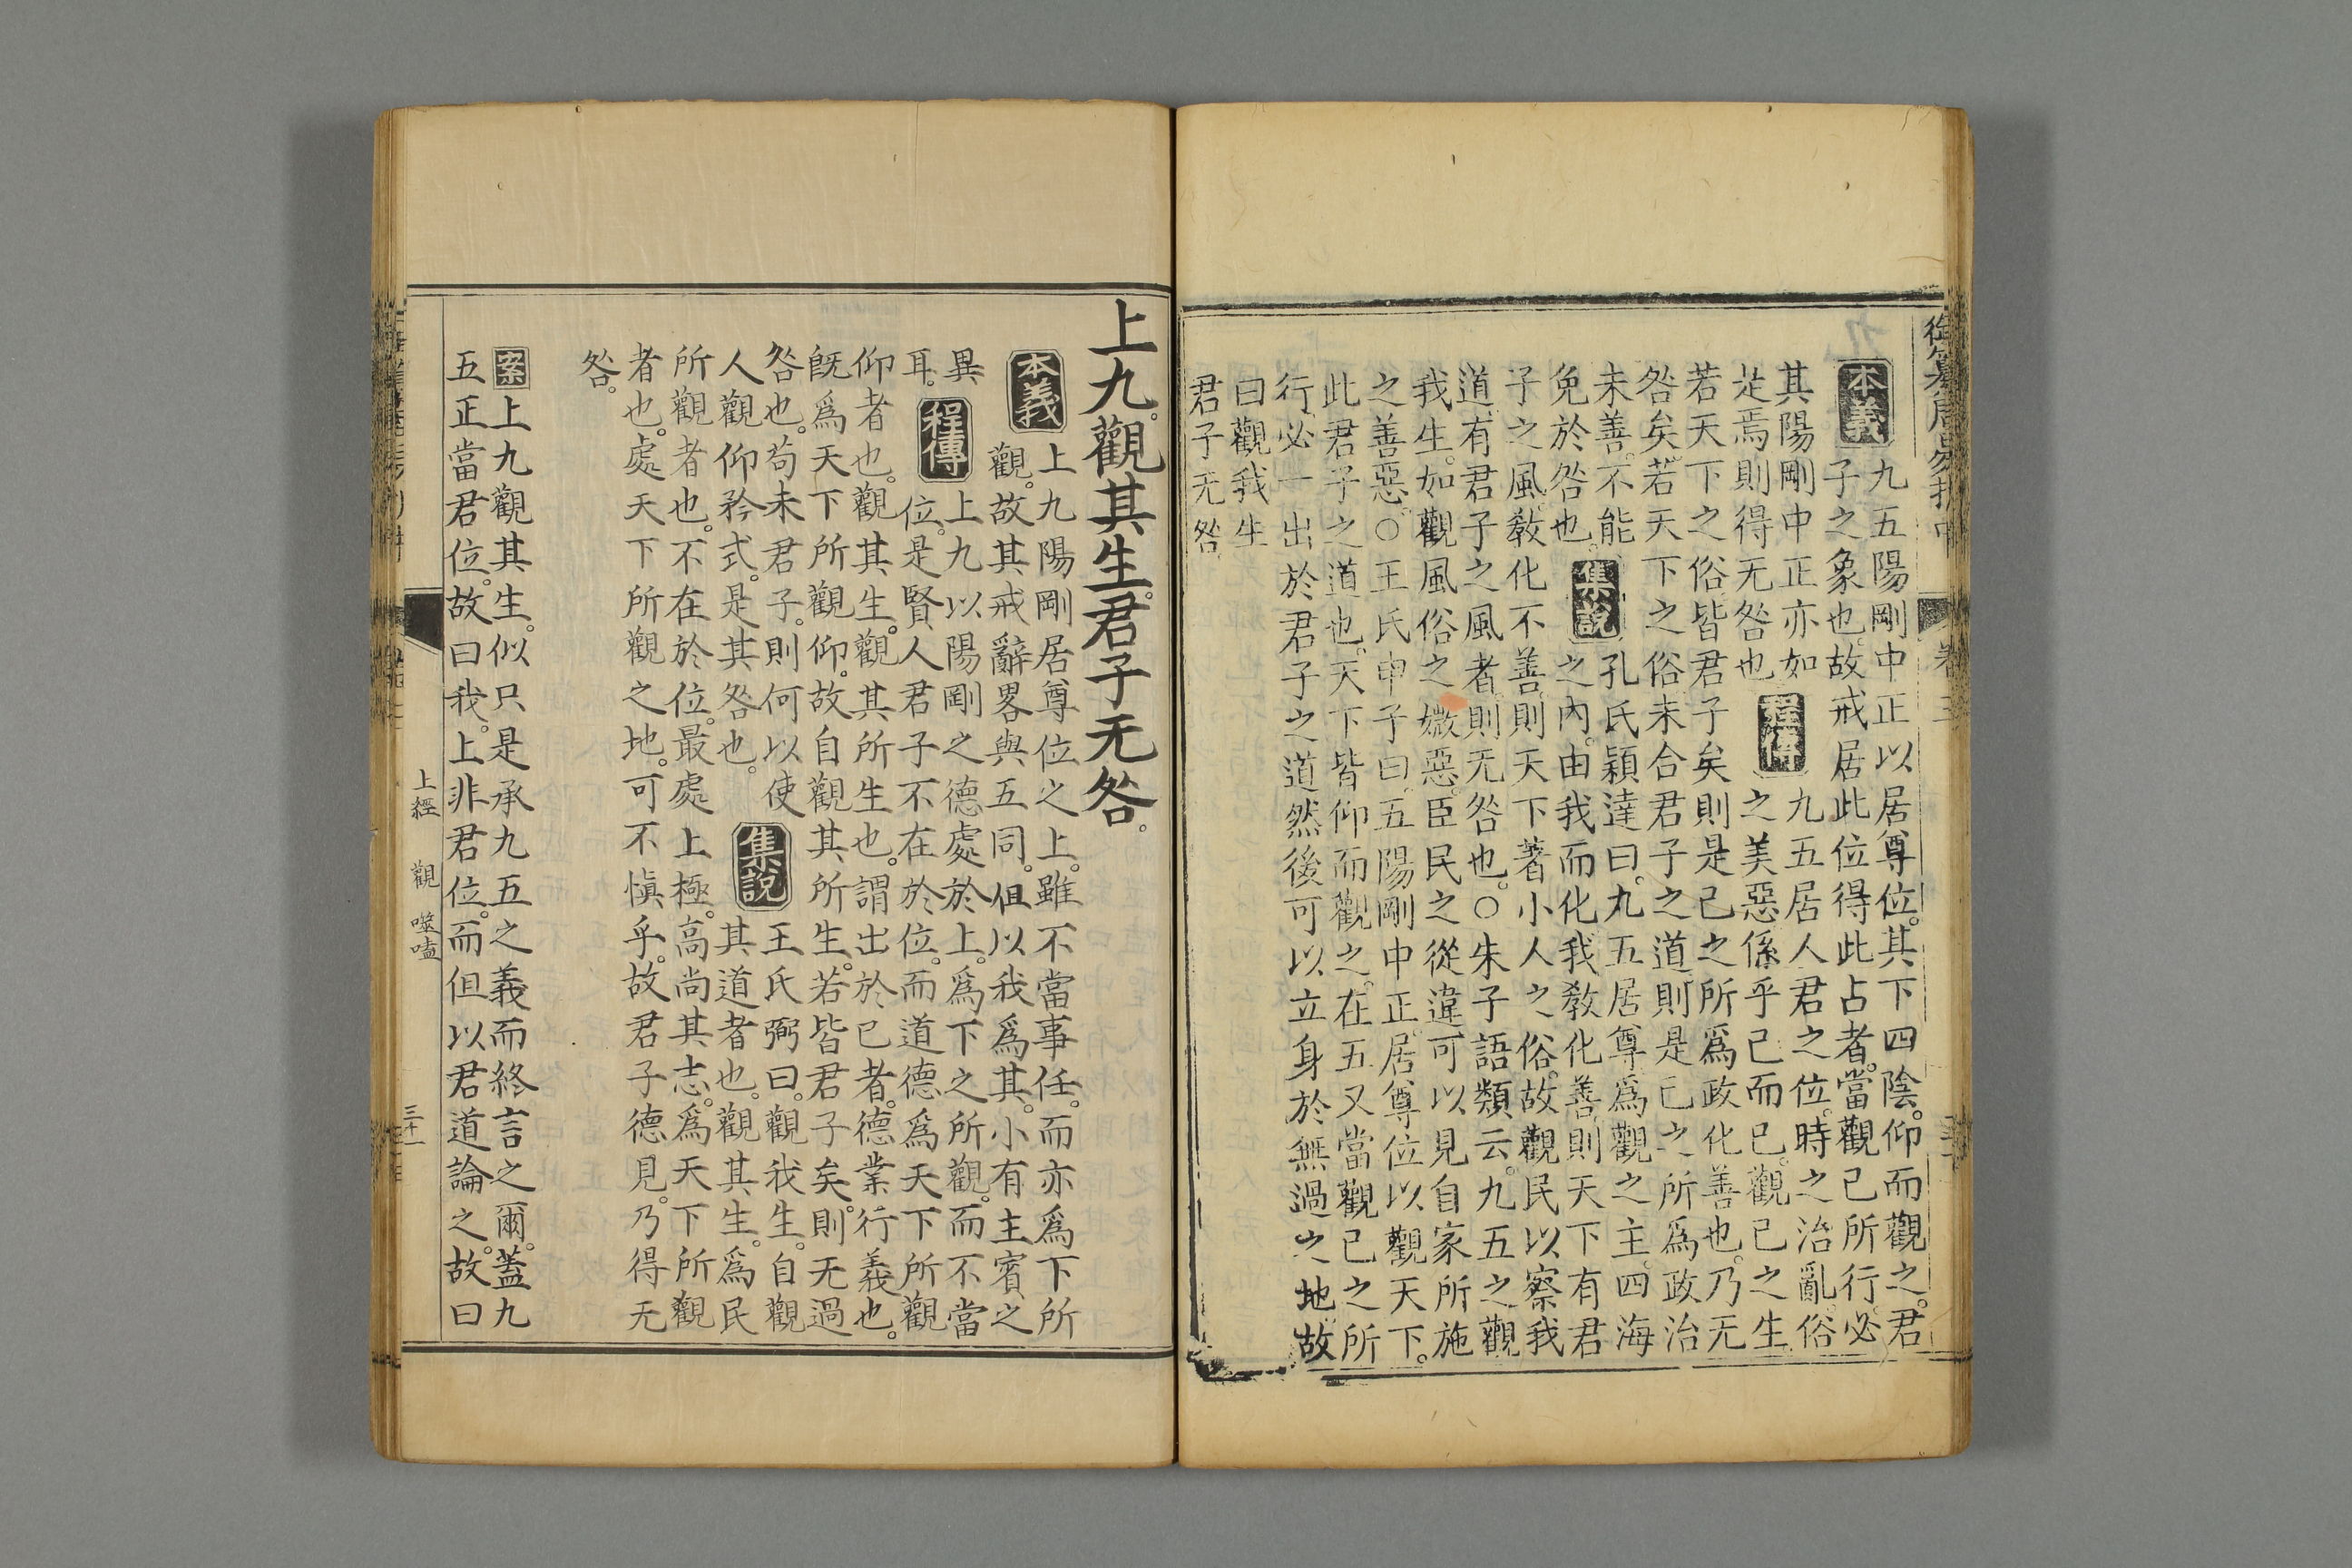 御纂周易折中 卷三
本義 九五陽剛中正以居尊位。其下四陰。仰而觀之。君
子之象也。故戒居此位得此占者。當觀己所行。必
其陽剛中正亦如 程傳 九五居人君之位。時之治亂。俗
是焉則得无咎也 之美惡係乎己而已。觀己之生
若天下之俗皆君子矣則是己之所爲政化善也。乃无
咎矣。若天下之俗未合君子之道則是己之所爲政治
未善。不能 集說 孔氏穎達曰。九五居尊爲觀之主。四海
免於咎也。 之內。由我而化我教化善則天下有君
子之風。教化不善。則天下著小人之俗。故觀民以察我
道有君子之風者則无咎也。○朱子語類云。九五之觀
我生。如觀風俗之媺惡。臣民之從違可以見自家所施
之善惡。○王氏申子曰。五陽剛中正。居尊位以觀天下。
此君子之道也。天下皆仰而觀之。在五又當觀己之所
行必一出於君子之道然後可以立身於無過之地。故
曰觀我生
君子无咎
上九。觀其生。君子无咎。
本義 上九陽剛居尊位之上。雖不當事任。而亦爲下所
觀。故其戒辭畧與五同。但以我爲其。小有主賓之
異 程傳 上九以陽剛之德處於上。爲下之所觀。而不當
耳。 位。是賢人君子不在於位。而道德爲天下所觀
仰者也。觀其生。觀其所生也。謂出於己者。德業行義也。
旣爲天下所觀仰。故自觀其所生。若皆君子矣。則无過
咎也。苟未君子。則何以使 集說 王氏弼曰。觀我生。自觀
人觀仰矜式。是其咎也。 其道者也。觀其生。爲民
所觀者也。不在於位。最處上極。高尚其志。爲天下所觀
者也。處天下所觀之地。可不愼乎。故君子德見。乃得无
咎。
案 上九觀其生。似只是承九五之義而終言之爾。蓋九
五正當君位。故曰我。上非君位。而但以君道論之。故曰
上經 觀 噬嗑
三十一